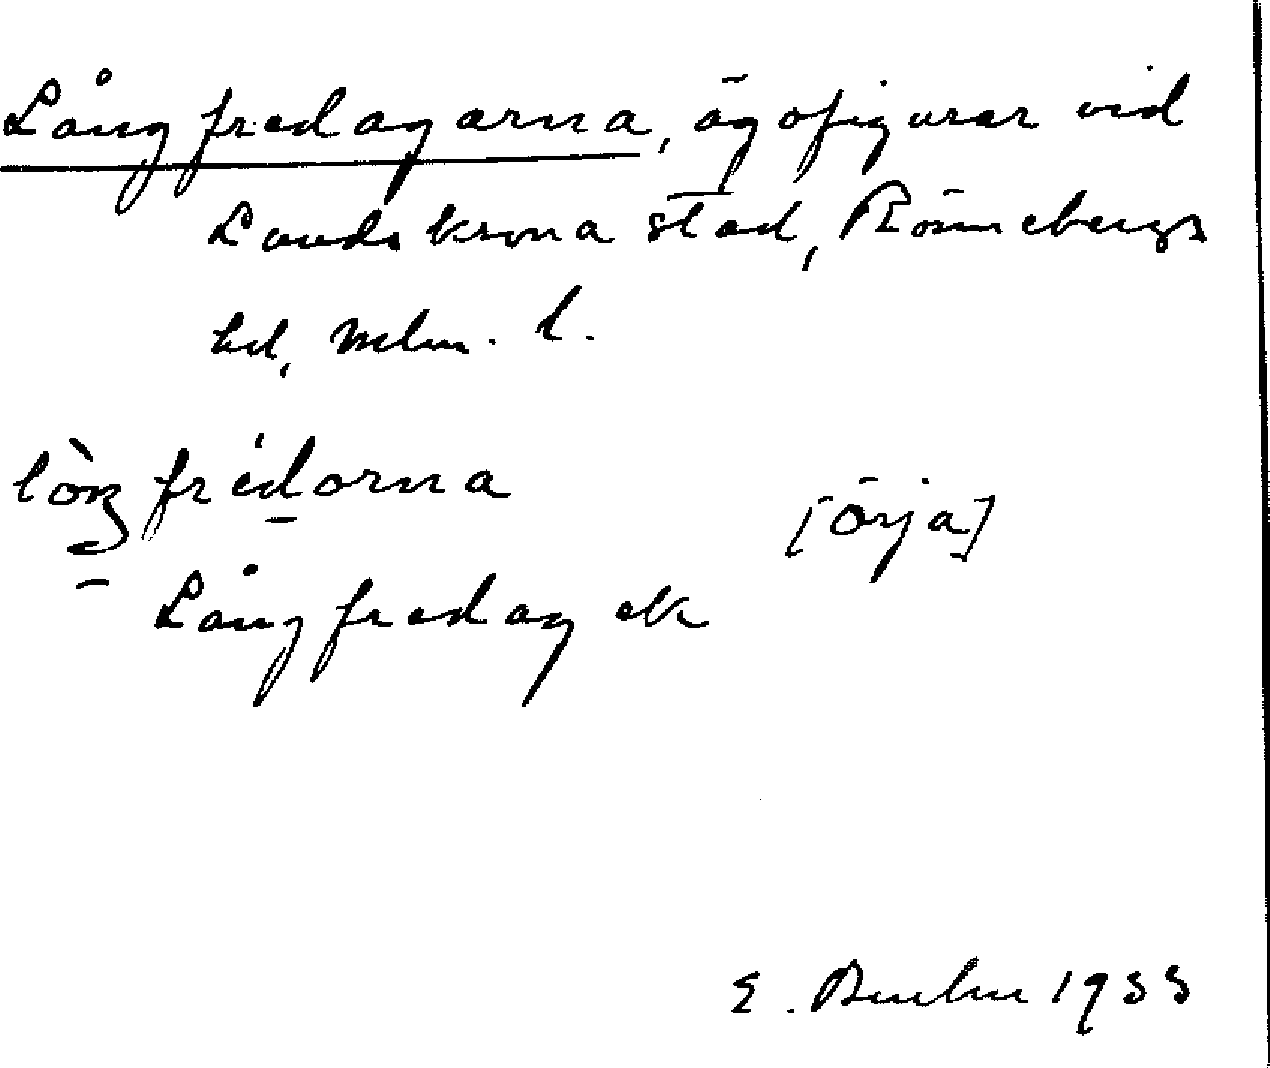 Långfredagarna, ägofigurer vid
Landskrona stad, Rönnebergs
hd, Mlm. l.
lòŋfrédorna
[Örja]
Långfredag ek
E. 1933